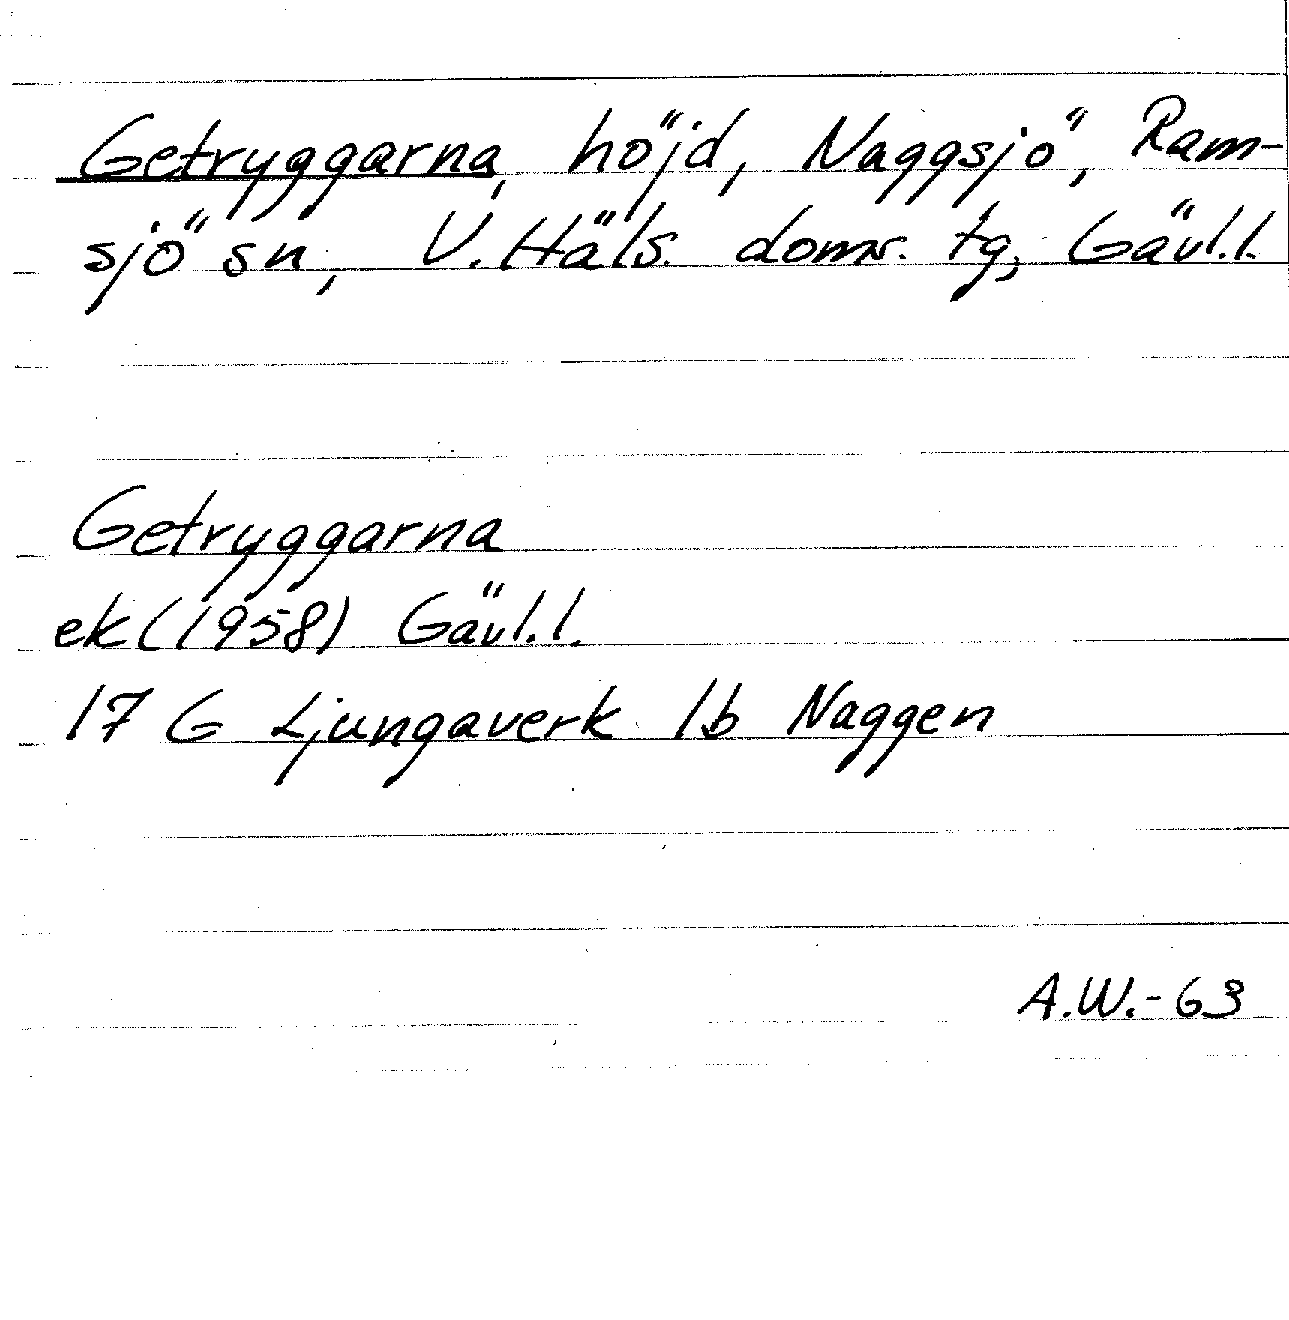 Getryggarna, höjd, Naggsjö, Ram-
sjö sn, V. Häls. doms. tg, Gävl.l.
Getryggarna
ek (1958) Gävl.l.
17 G Ljungaverk 1b Naggen
A.W.-63